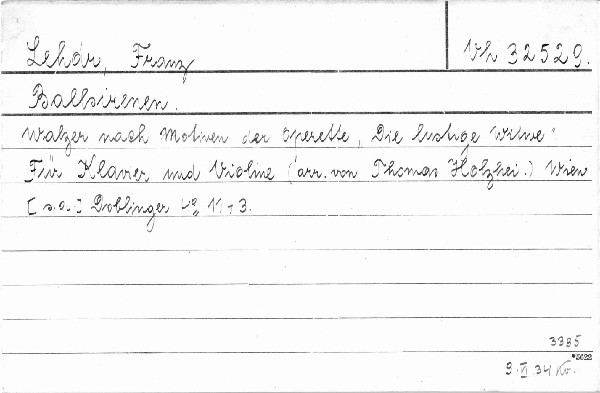 Lehár, Franz
Vh 32529.
Ballsirenen.
Walzer nach Motiven der Operette „Die lustige Witwe"
Für Klavier und Violine (arr. von Thomas Holzhei.) Wien
[s.a.] Doblinger 4° 11+3.
3335
*5622
9. VI 34 Kv.